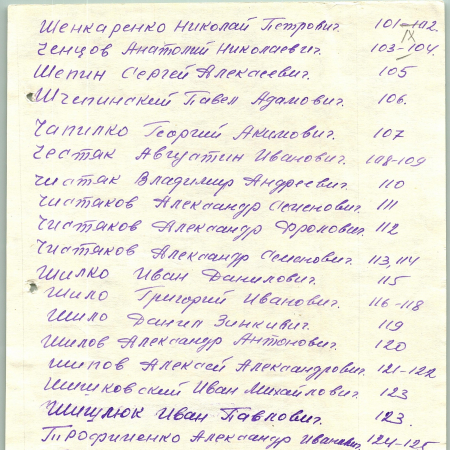 Шенкаренко Николай Петрович. 101-102
IX
Ченцов Анатолий Николаевич. 103-104.
Шепин Сергей Алексеевич. 105
Щепинский Павел Адамович. 106.
Чапилко Георгий Акимович. 107
Честяк Августин Иванович. 108-109
Чистяк Владимир Андреевич. 110
Чистяков Александр Семенович. 111
Чистяков Александр Фролович. 112
Чистяков Александр Семенович. 113, 114
Шилко Иван Данилович. 115
Шило Григорий Иванович. 116-118
Шило Данил Зинкивич. 119
Шилов Александр Антонович. 120
Шипов Алексей Александрович. 121-122
Шишковский Иван Михайлович. 123
Шищлюк Иван Павлович. 123.
Трофименко Александр Иванович. 124-125